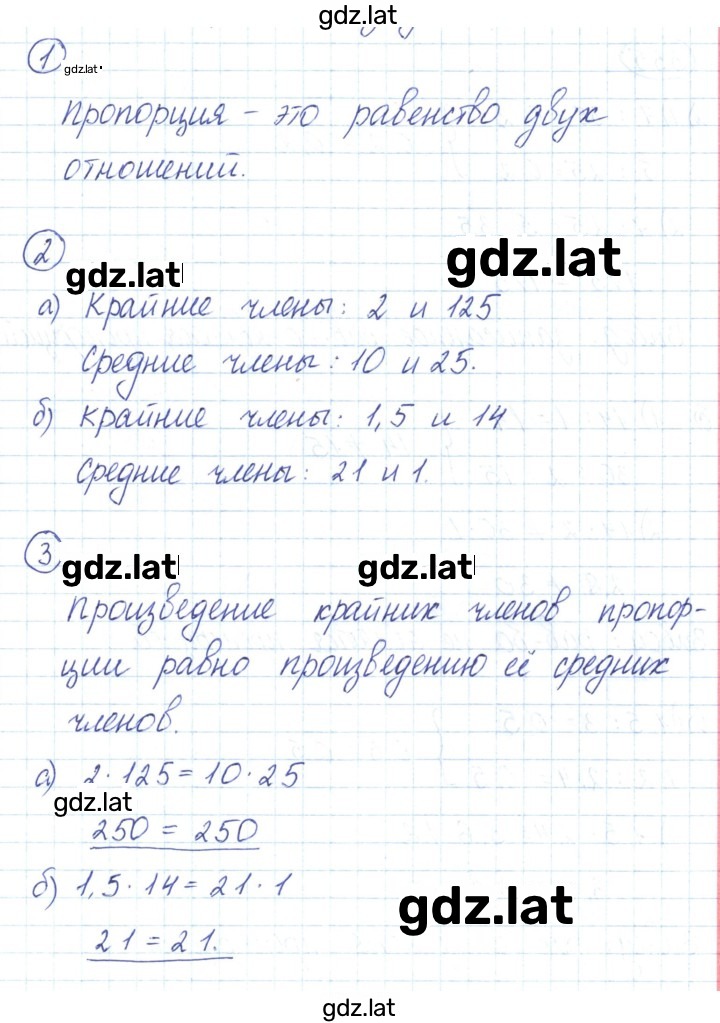 gdz.lat
1
gdz.lat
Пропорция – это равенство двух
отношений.
2
gdz.lat
gdz.lat
а) Крайние члены: 2 и 125
Средние члены: 10 и 25.
б) Крайние члены: 1,5 и 14
Средние члены: 21 и 1.
3
gdz.lat
gdz.lat
Произведение крайних членов пропор-
ции равно произведению её средних
членов.
а) 2 · 125 = 10 · 25
gdz.lat
250 = 250
б) 1,5 · 14 = 21 · 1
gdz.lat
21 = 21.
gdz.lat